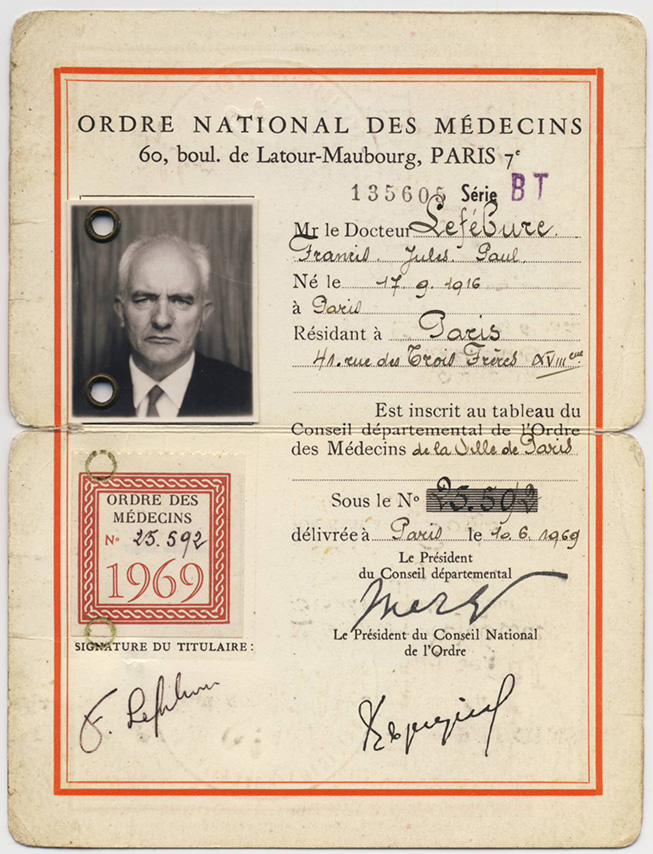 ORDRE NATIONAL DES MÉDECINS
60, boul. de Latour-Maubourg, PARIS 7e
135605 Série BT
Mr le Docteur Lefébure.
Francis. Jules. Paul.
Né le 17. 9. 1916
à Paris
Résidant à Paris
41. rue des Trois Frères XVIIIeme
Est inscrit au tableau du
Conseil départemental de l'Ordre
des Médecins de la Ville de Paris
Sous le No 25.592
délivrée à Paris le 10. 6. 1969
Le Président
du Conseil départemental
Le Président du Conseil National
de l'Ordre
ORDRE DES
MÉDECINS
No 25.592
1969
SIGNATURE DU TITULAIRE :
F. Lefébure